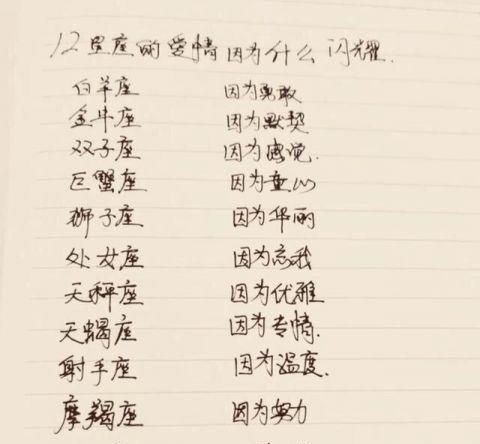 12星座的爱情因为什么闪耀.
白羊座 因为勇敢
金牛座 因为默契
双子座 因为感觉.
巨蟹座 因为童心
狮子座 因为华丽
处女座 因为忘我
天秤座 因为优雅
天蝎座 因为专情.
射手座 因为温度.
摩羯座 因为努力